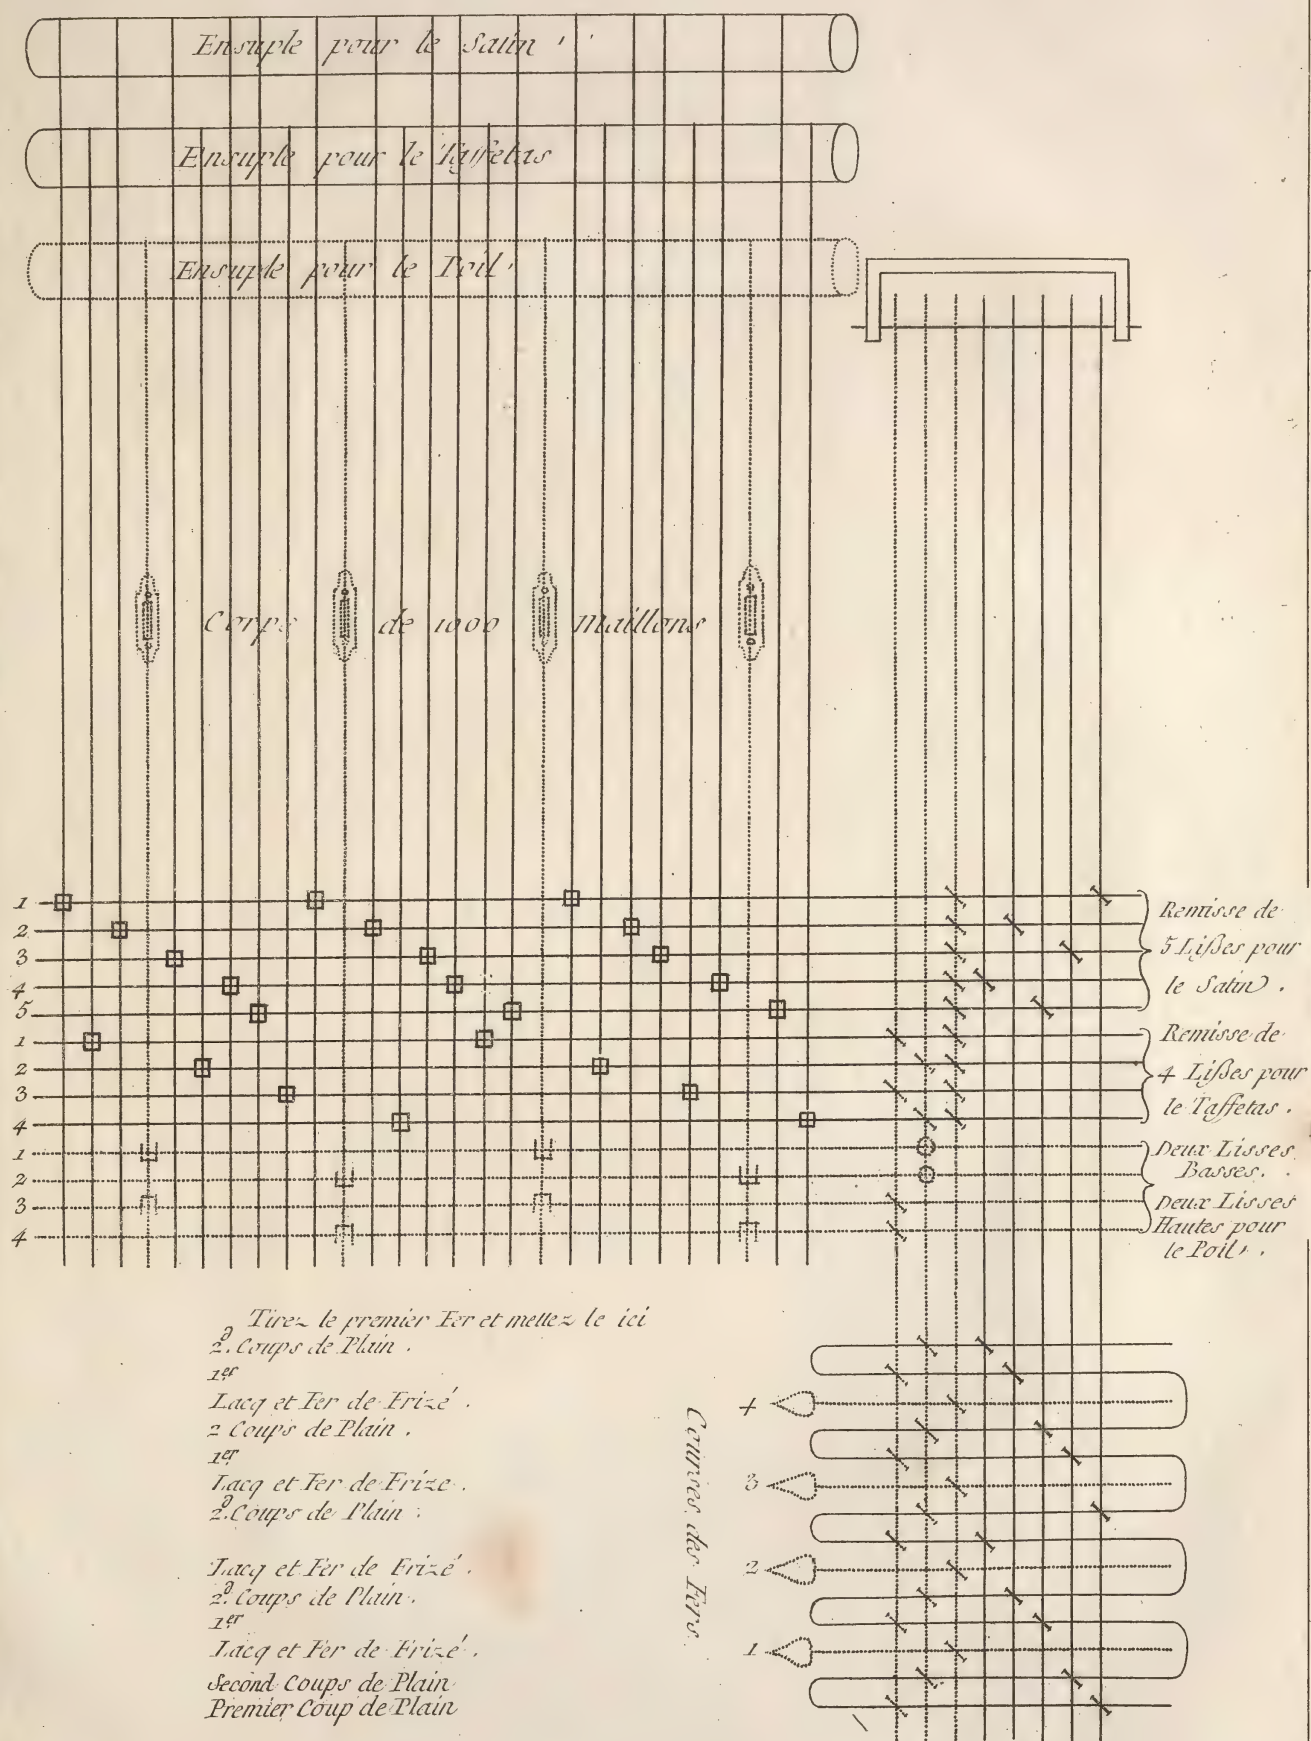 Ensuple pour le Satin
Ensuple pour le Taffetas
Ensuple pour le Poil
Corps de 1000 Maillons
1
2
3
4
5
1
2
3
4
1
2
3
4
Remisse de
5 Lißes pour
le Satin.
Remisse de
4 Lißes pour
le Taffetas.
Deux Lisses
Basses.
Deux Lisses
Hautes pour
le Poil.
Tirez le premier Fer et mettez le ici
2.d Coups de Plain.
1er
Lacq et Fer de Frizé.
2 Coups de Plain.
1er
Lacq et Fer de Frize.
2.d Coups de Plain.
Lacq et Fer de Frizé.
2.d Coups de Plain.
1er
Lacq et Fer de Frizé.
Second Coups de Plain
Premier Coup de Plain
Courses des Fers.
4
3
2
1